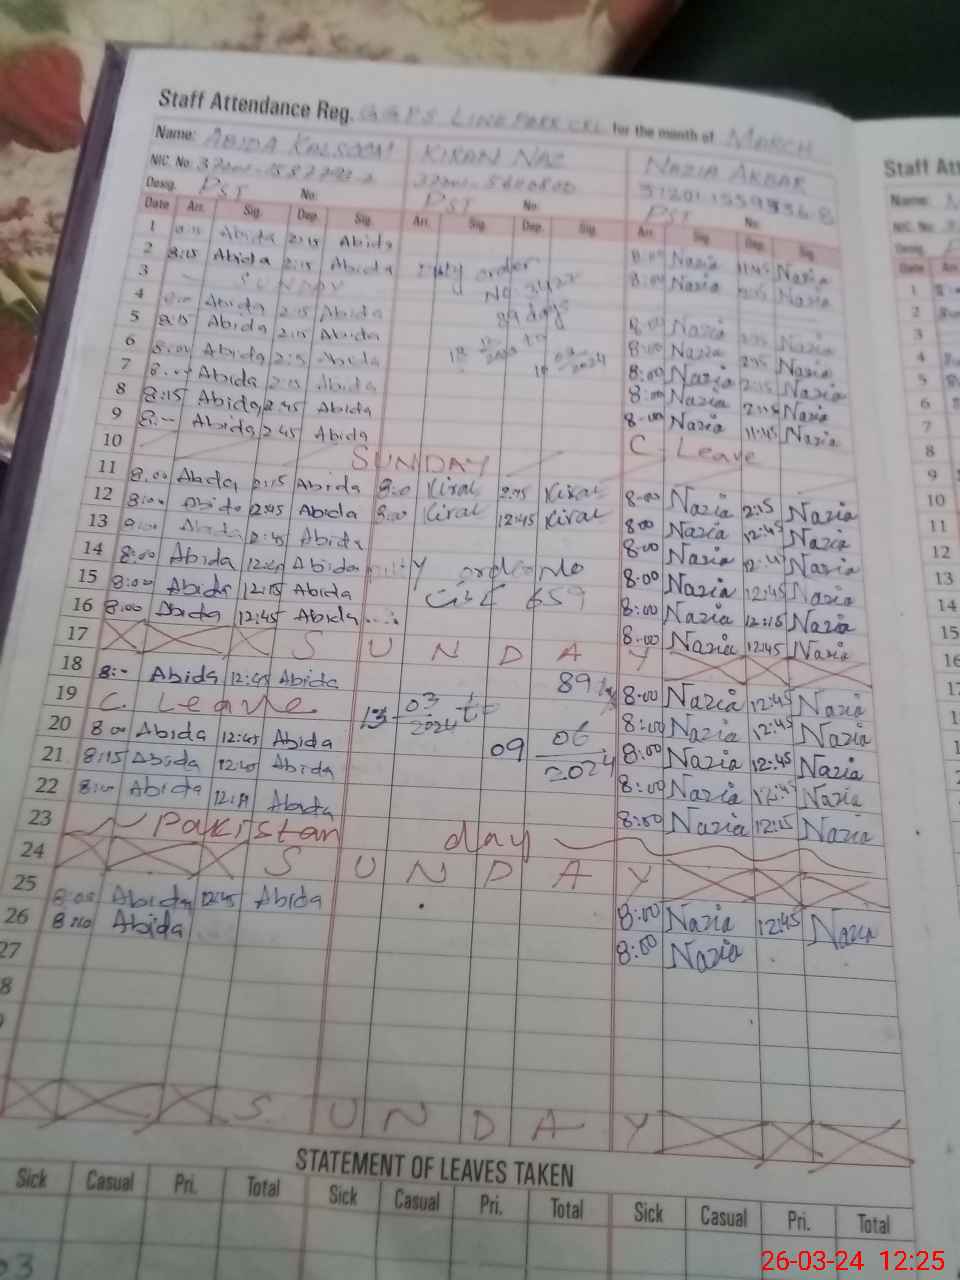 Staff Attendance Reg. GGPS LINE PARK CKL for the month of MARCH
Name: ABIDA KALSOOM KIRAN NAZ NAZIA AKBAR
NIC. No.
Desig. PST No: PST No: PST No:
Date Arr. Sig. Dep. Sig. Arr. Sig. Dep. Sig. Arr. Sig. Dep. Sig.
1 Abida 2:15 Abida 8:00 Nazia 11:45 Nazia
2 8:15 Abida 2:15 Abida Duty order 8:00 Nazia Nazia
3 SUNDAY No
4 Abida 2:15 Abida 89 days 8:00 Nazia Nazia
5 8:15 Abida 2:15 Abida to 8:00 Nazia 2:15 Nazia
6 8:00 Abida 2:15 Abida 2024 8:00 Nazia 2:15 Nazia
7 8:00 Abida 2:15 Abida 8:00 Nazia 2:15 Nazia
8 8:15 Abida 2:45 Abida 8:00 Nazia 11:45 Nazia
9 8:- Abida 2:45 Abida C. Leave
10 SUNDAY
11 8:00 Abida 2:15 Abida 8:0 Kiral 2:15 Kiral 8:00 Nazia 2:15 Nazia
12 8:00 Abida 2:45 Abida 8:00 Kiral 12:45 Kiral 8:00 Nazia 12:45 Nazia
13 8:00 Abida 2:45 Abida 8:00 Nazia Nazia
14 8:00 Abida 12:45 Abida Duty order No 8:00 Nazia 12:45 Nazia
15 8:00 Abida 12:15 Abida 659 8:00 Nazia 12:15 Nazia
16 8:00 Abida 12:45 Abida 8:00 Nazia 12:45 Nazia
17 S U N D A Y
18 8:- Abida 12:45 Abida 89 8:00 Nazia 12:45 Nazia
19 C. Leave 13 03 2024 to 8:00 Nazia 12:45 Nazia
20 8:00 Abida 12:45 Abida 09 06 2024 8:00 Nazia 12:45 Nazia
21 8:15 Abida 12:45 Abida 8:00 Nazia 12:45 Nazia
22 8:00 Abida Abida 8:00 Nazia 12:15 Nazia
23 Pakistan day
24 S U N D A Y
25 8:00 Abida 12:45 Abida 8:00 Nazia 12:45 Nazia
26 8:00 Abida 8:00 Nazia
27
8
S U N D A Y
STATEMENT OF LEAVES TAKEN
Sick Casual Pri. Total Sick Casual Pri. Total Sick Casual Pri. Total
03
Staff Att
Name:
NIC. No.
Desig.
Date
1
2
3
4
5
6
7
8
9
10
11
12
13
14
15
16
17
18
26-03-24 12:25